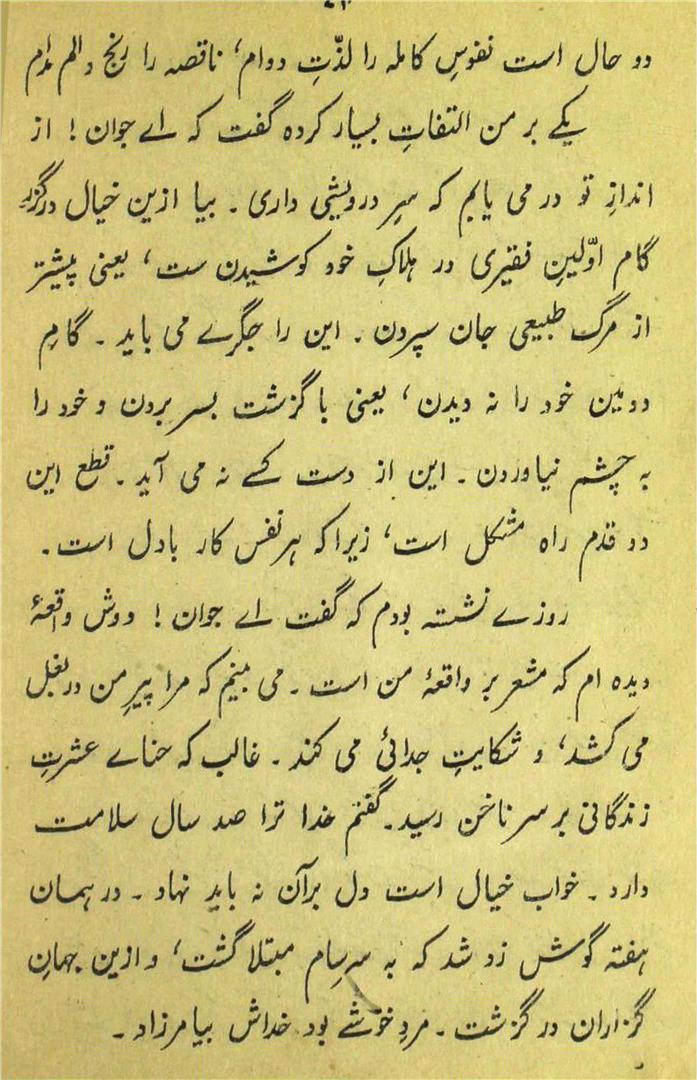 دو حال است نفوسِ کاملہ را لذّتِ دوام، ناقصہ را رنج و الم مدام
یکے بر من التفاتِ بسیار کردہ گفت کہ اے جوان! از
اندازِ تو در می یابم کہ سرِ درویشی داری۔ بیا ازین خیال درگزر
گام اوّلینِ فقیری در ہلاکِ خود کوشیدن ست، یعنی پیشتر
از مرگ طبیعی جان سپردن۔ این را جگرے می باید۔ گامِ
دومین خود را نہ دیدن، یعنی با گزشت بسر بردن و خود را
بہ چشم نیاوردن۔ این از دست کسے نہ می آید۔ قطع این
دو قدم راہ مشکل است، زیرا کہ ہر نفس کار بادل است۔
روزے نشستہ بودم کہ گفت اے جوان! دوش واقعۂ
دیدہ ام کہ مشعر بر واقعۂ من است۔ می بینم کہ مرا پیرِ من در بغل
می کشد، و شکایتِ جدائی می کند۔ غالب کہ حناے عشرتِ
زندگانی بر سر ناخن رسید۔ گفتم خدا ترا صد سال سلامت
دارد۔ خواب خیال است دل برآن نہ باید نہاد۔ در ہمان
ہفتہ گوش زد شد کہ بہ سرسام مبتلا گشت، و ازین جہانِ
گزاران در گزشت۔ مردِ خوشے بود خداش بیامرزاد۔